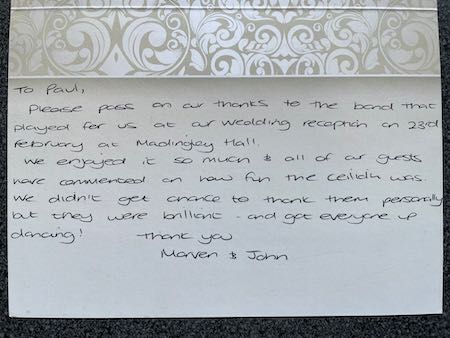 To Paul,
Please pass on our thanks to the band that
played for us at our wedding reception on 23rd
February at Madingley Hall.
We enjoyed it so much & all of our guests
have commented on how fun the ceilidh was.
We didn't get chance to thank them personally
but they were brilliant - and got everyone up
dancing! Thank you
Morven & John